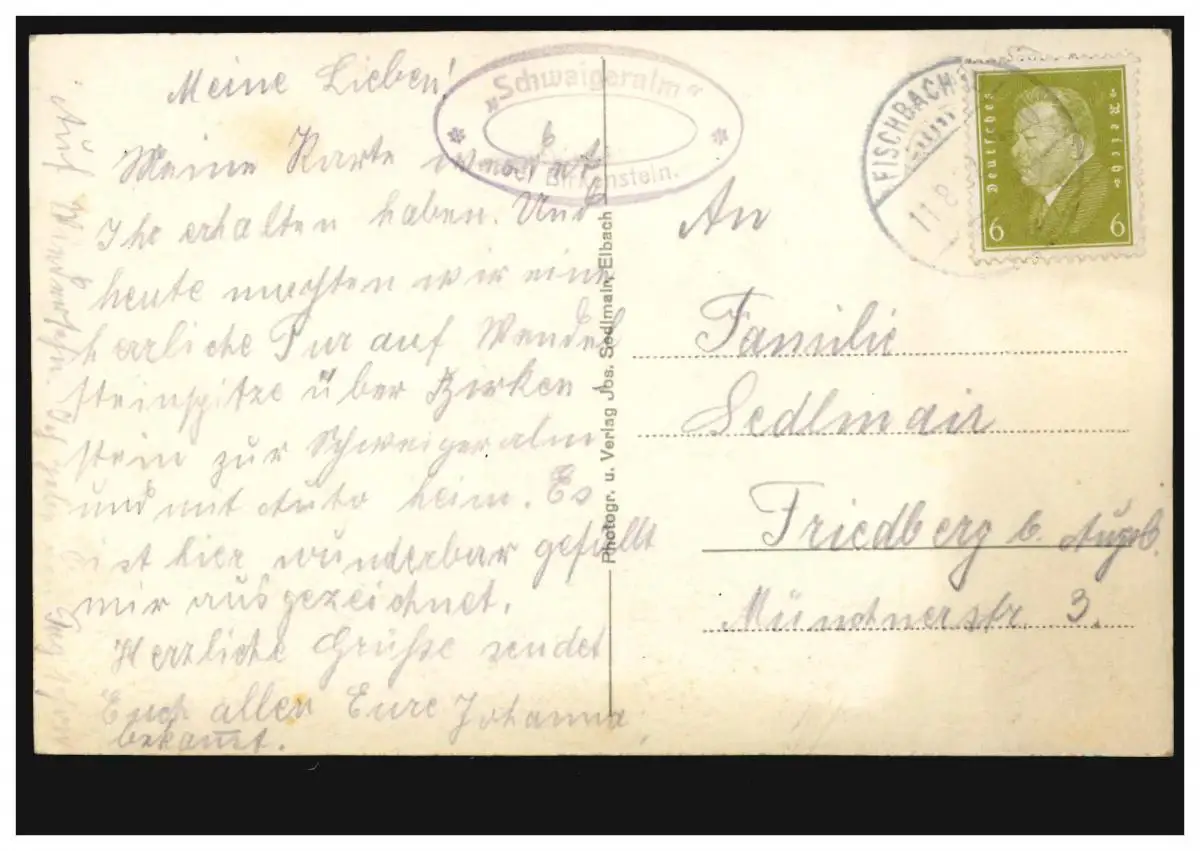 Meine Lieben!
Meine Karte werdet
Ihr erhalten haben. Und
heute machten wir eine
herrliche Tur auf Wendel
steinspitze über Birken
stein zur Schweigeralm
und mit Auto heim. Es
ist hier wunderbar gefällt
mir ausgezeichnet.
Herzliche Grüße sendet
Euch allen Eure Johanna
bekannt.
Auf Wiedersehn.
"Schweigeralm"
Birkenstein.
Photogr. u. Verlag Jos. Sedlmair, Elbach
FISCHBACH
11.8.
Deutsches Reich
6 6
An
Familie
Sedlmair
Friedberg b. Augsb.
Münchnerstr. 3.